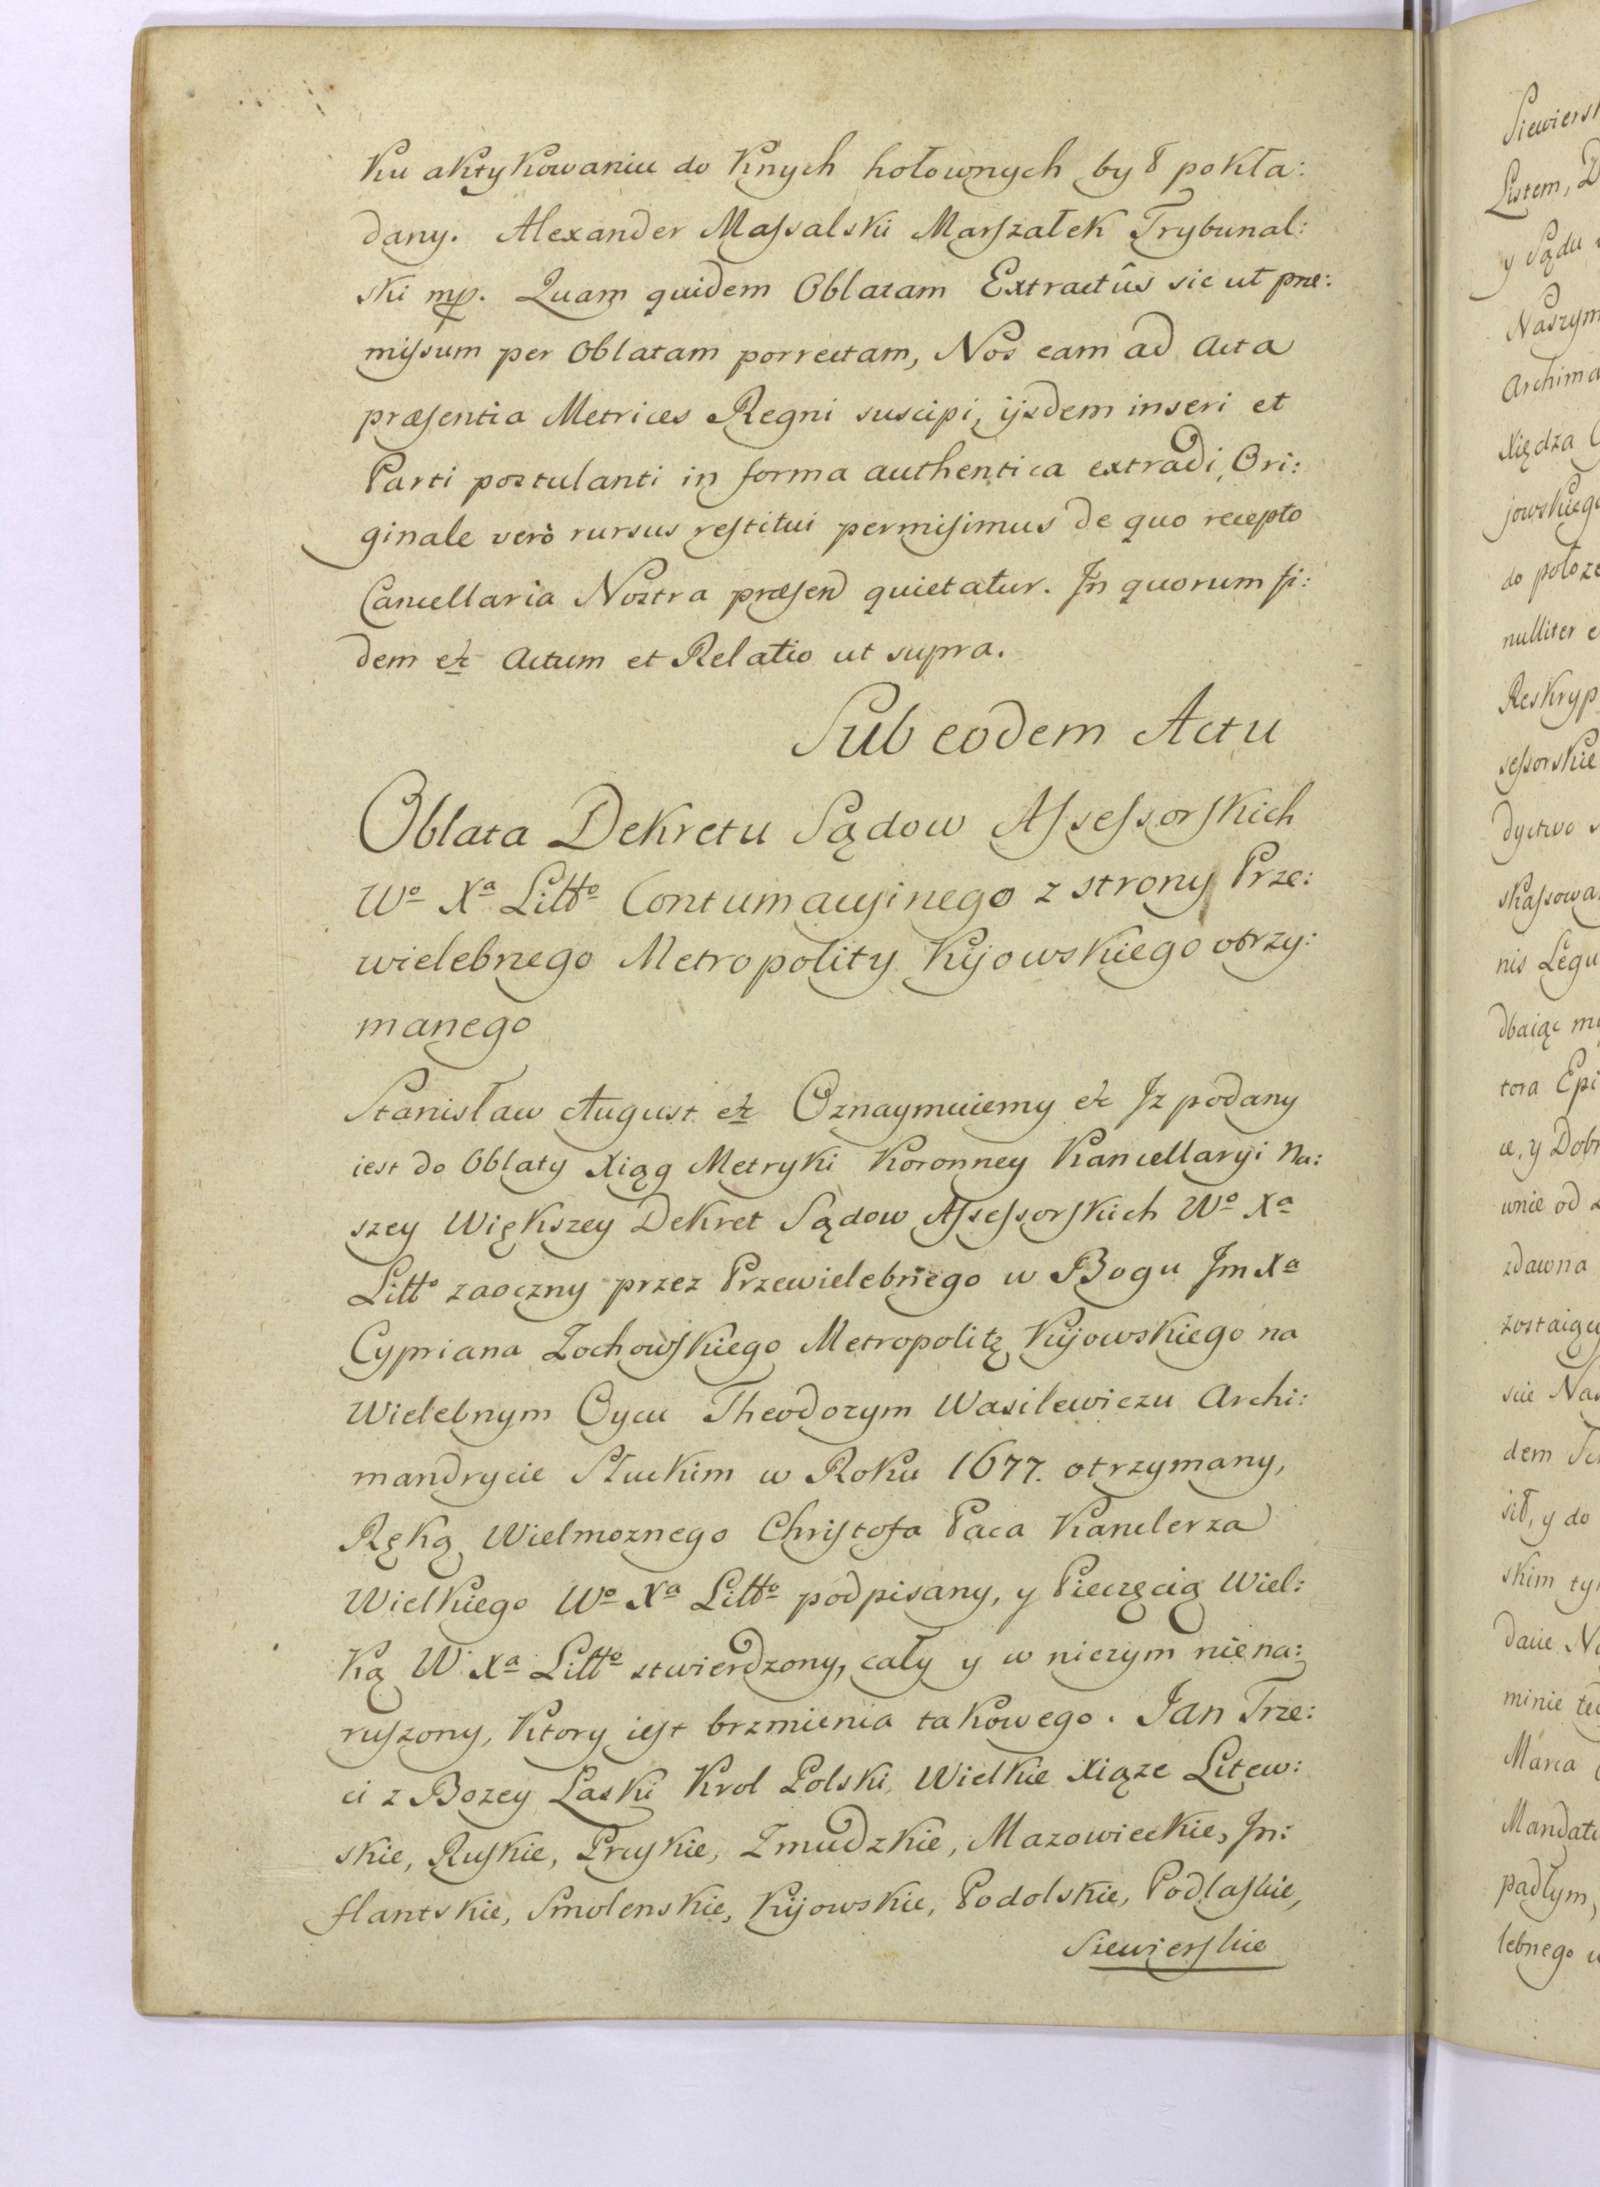 Ku aktykowaniu do Knych hołownych był pokła:
dany. Alexander Massalski Marszałek Trybunal:
ski mp. Quam quidem Oblatam Extractûs sic ut præ:
missum per Oblatam porrectam, Nos eam ad Acta
præsentia Metrices Regni suscipi, ijsdem inseri et
Parti postulanti in forma authentica extradi, Ori:
ginale verò rursus restitui permisimus de quo recepto
Cancellaria Nostra præsen quietatur. Jn quorum fi:
dem etc Actum et Relatio ut supra.
Sub eodem Actu
Oblata Dekretu Sądow Assessorskich
Wo Xa Litto Contumacyinego z strony Prze:
wielebnego Metropolity Kijowskiego otrzy:
manego
Stanisław August etc Oznaymuiemy etc Jz podany
iest do Oblaty Xiąg Metryki Koronney Kancellaryi Na:
szey Większey Dekret Sądow Assessorskich Wo Xa
Litto zaoczny przez Przewielebnego w Bogu Jm Xa
Cypriana Zochowskiego Metropolitę Kijowskiego na
Wielebnym Oycu Theodozym Wasilewiczu Archi:
mandrycie Słuckim w Roku 1677. otrzymany,
Ręką Wielmoznego Christofa Paca Kanclerza
Wielkiego Wo Xa Litto podpisany, y Pieczęcią Wiel:
Ką W Xa Litto stwierdzony, cały y w niczym niena:
ruszony, Ktory iest brzmienia takowego. Jan Trze:
ci z Bozey Łaski Krol Polski Wielkie Xiąze Litew:
skie, Ruskie, Pruskie, Zmudzkie, Mazowieckie, Jn:
flantskie, Smolenskie, Kijowskie, Podolskie, Podlaskie,
Siewierskie
Siewiers
Listem, D
y Sądu
Naszym
Archima
Xiędza
jowskieg
do połoze
nulliter e
Reskryp
sessorskie
dyctwo s
skassowa
nis Legu
dbaiąc my
tora Epi
ie, y Dobr
wnie od
zdawna
zostaiący
scie Nas
dem
sił, y do
skim ty
dacie No
minie te
Marca
Mandatu
padłym,
lebnego w